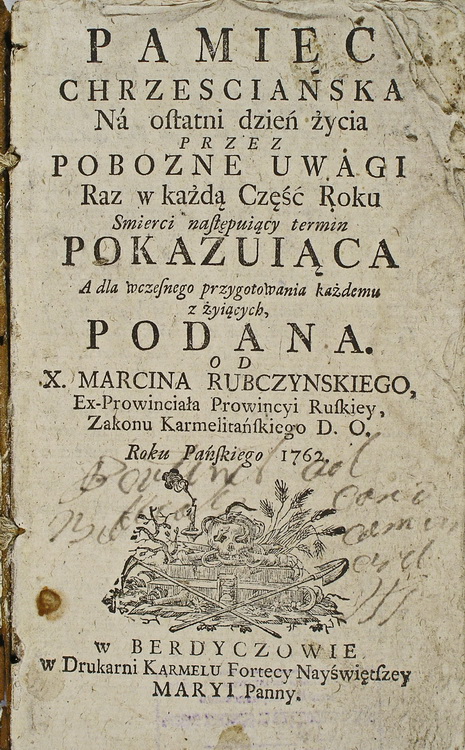 PAMIĘC
CHRZESCIAŃSKA
Ná oſtatni dzień życia
PRZEZ
POBOZNE UWAGI
Raz w każdą Część Roku
Smierci naſtępuiący termin
POKAZUIĄCA
A dla wczeſnego przygotowania każdemu
z żyiących,
PODANA.
OD
X. MARCINA RUBCZYNSKIEGO,
Ex-Prowinciała Prowincyi Ruſkiey,
Zakonu Karmelitańſkiego D. O.
Roku Pańſkiego 1762.
w BERDYCZOWIE
w Drukarni KARMELU Fortecy Nayświętſzey
MARYI Panny.